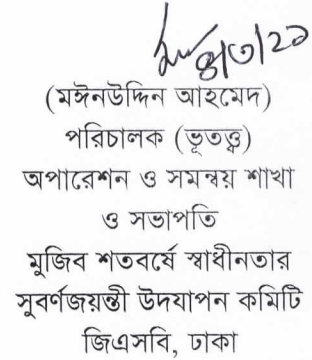 ৪/৩/২১
(মঈনউদ্দিন আহমেদ)
পরিচালক (ভূতত্ত্ব)
অপারেশন ও সমন্বয় শাখা
ও সভাপতি
মুজিব শতবর্ষে স্বাধীনতার
সুবর্ণজয়ন্তী উদযাপন কমিটি
জিএসবি, ঢাকা